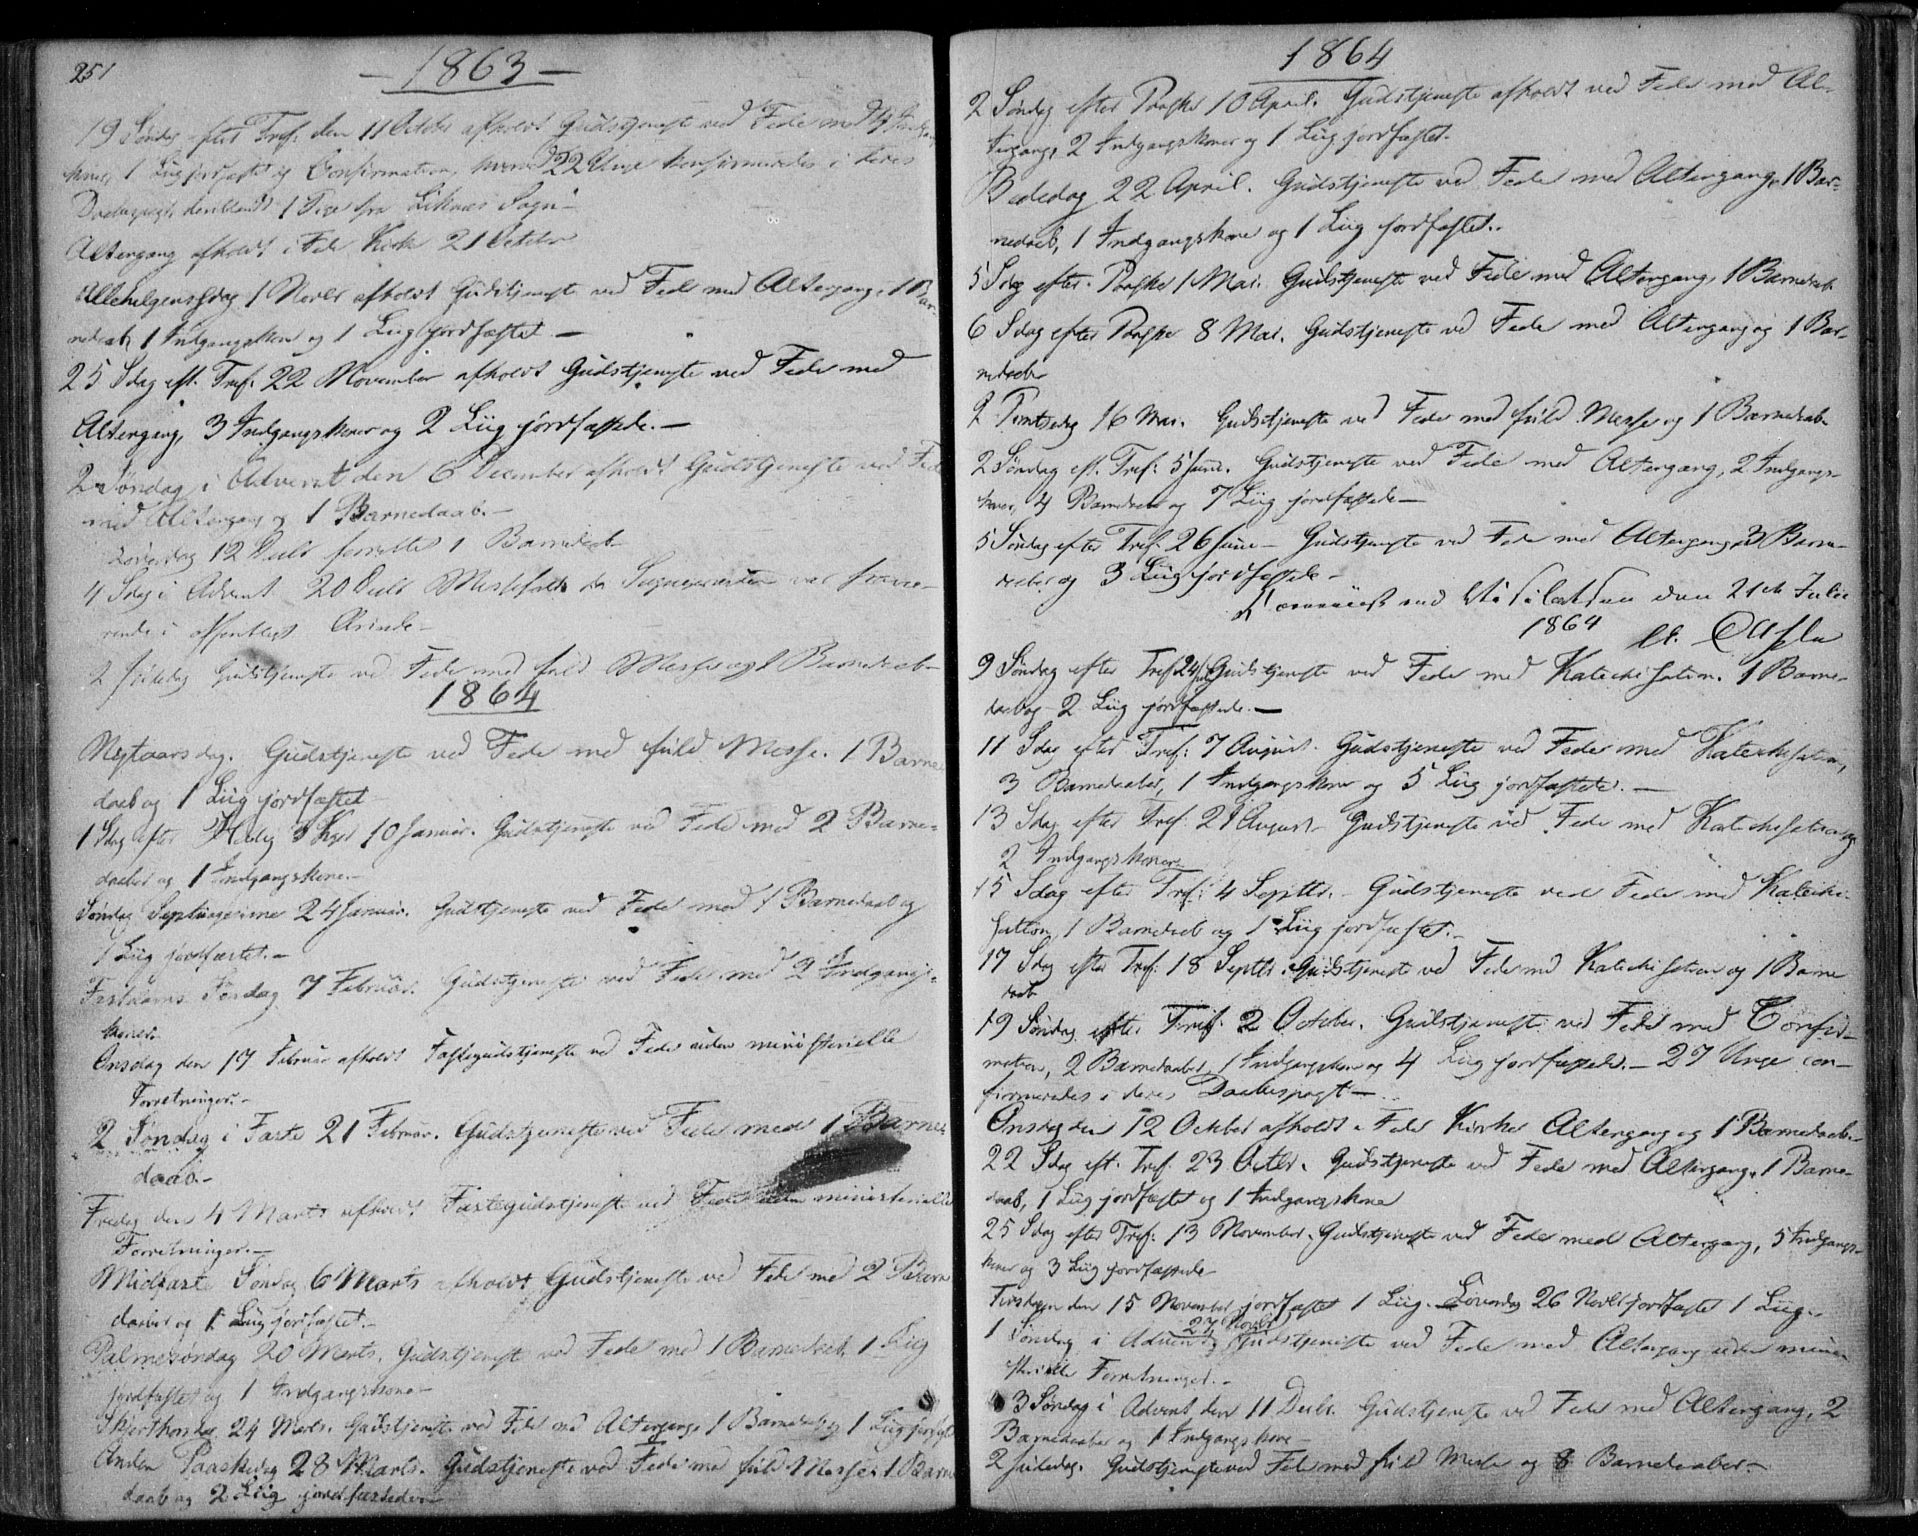 251
— 1863 —
19 Søndag efter Tref. den 11 October afholdt Gudstjeneste ved Fede med 4 Indgangs-
koner, 1 Liig jordfæstet og Confirmation, hvorved 22 Unge konfirmeredes i deres
Daabspagt, deriblandt 1 Pige fra Liknæs Sogn —
Altergang afholdt i Fede Kirke 21 October
Allehelgensdag 1 Novbr afholdt Gudstjeneste ved Fede med Altergang, 1 Bar-
nedaab, 1 Indgangskone og 1 Liig jordfæstet —
25 Sdag eft. Tref. 22 November afholdt Gudstjeneste ved Fede med
Altergang, 3 Indgangskoner og 2 Liig jordfæstede. —
2 Søndag i Advent den 6 December afholdt Gudstjeneste ved Fede
med Altergang og 1 Barnedaab. —
Løverdag 12 Decbr forrettet 1 Barnedaab
4 Sdag i Advent 20 Decbr Messefald da Sognepræsten var fravæ-
rende i offentligt Ærinde —
2 Juledag Gudstjeneste ved Fede med fuld Messe og 1 Barnedaab —
1864
Nytaarsdag. Gudstjeneste ved Fede med fuld Messe. 1 Barne-
daab og 1 Liig jordfæstet
1 Sdag efter Hellig 3 Kger 10 Januar. Gudstjeneste ved Fede med 2 Barne-
daaber og 1 Indgangskone. —
Søndag Septuagesima 24 Januar. Gudstjeneste ved Fede med 1 Barnedaab og
1 Liig jordfæstet. —
Fastelavns Søndag 7 Februar. Gudstjeneste ved Fede med 2 Indgangs-
koner.
Onsdag den 17 Februar afholdt Fastegudstjeneste ved Fede uden ministerielle
Forretninger. —
2 Søndag i Faste 21 Februar. Gudstjeneste ved Fede med 1 Barne-
daab. —
Fredag den 4 Marts afholdt Fastegudstjeneste ved Fede uden ministerielle
Forretninger. —
Midfaste Søndag 6 Marts afholdt Gudstjeneste ved Fede med 2 Barne-
daaber og 1 Liig jordfæstet. —
Palmesøndag 20 Marts. Gudstjeneste ved Fede med 1 Barnedaab, 1 Liig
jordfæstet og 1 Indgangskone —
Skjærthorsdag 24 Marts. Gudstjeneste ved Fede med Altergang, 1 Barnedaab og 1 Liig jordfæstet
Anden Paaskedag 28 Marts. Gudstjeneste ved Fede med fuld Messe, 1 Barne-
daab og 2 Liig jordfæstede —
1864
2 Søndag efter Paaske 10 April. Gudstjeneste afholdt ved Fede med Al-
tergang, 2 Indgangskoner og 1 Liig jordfæstet.
Bededag 22 April. Gudstjeneste ved Fede med Altergang, 1 Bar-
nedaab, 1 Indgangskone og 1 Liig jordfæstet.
5 Sdag efter Paaske 1 Mai. Gudstjeneste ved Fede med Altergang, 1 Barnedaab
6 Sdag efter Paaske 8 Mai. Gudstjeneste ved Fede med Altergang og 1 Bar-
nedaab
2 Pintsedag 16 Mai. Gudstjeneste ved Fede med fuld Messe og 1 Barnedaab
2 Søndag eft. Tref: 5 Juni. Gudstjeneste ved Fede med Altergang, 2 Indgangs-
koner, 4 Barnedaab og 7 Liig jordfæstede —
5 Søndag efter Tref. 26 Juni — Gudstjeneste ved Fede med Altergang, 3 Barne-
daaber og 3 Liig jordfæstede —
ved Visitatsen den 21de Julii
1864
9 Søndag efter Tref 24 Juli Gudstjeneste ved Fede med Katechisation. 1 Barne-
daab og 2 Liig jordfæstede. —
11 Sdag efter Tref: 7 August. Gudstjeneste ved Fede med Katechisation,
3 Barnedaaber, 1 Indgangskone og 5 Liig jordfæstede. —
13 Sdag efter Tref. 21 August — Gudstjeneste ved Fede med Katechisation og
2 Indgangskoner
15 Sdag efter Tref: 4 Septbr. — Gudstjeneste ved Fede med Katechi-
sation, 1 Barnedaab og 1 Liig jordfæstet. —
17 Sdag efter Tref: 18 Septbr. Gudstjeneste ved Fede med Katechisation og 1 Barne
daab
19 Søndag efter Tref. 2 October. Gudstjeneste ved Fede med Confir-
mation, 2 Barnedaaber, 1 Indgangskone og 4 Liig jordfæstede. — 27 Unge con-
firmeredes i deres Daabespagt —
Onsdag den 12 October afholdt i Fede Kirke Altergang og 1 Barnedaab.
22 Sdag eft. Tref. 23 Octbr. Gudstjeneste ved Fede med Altergang, 1 Barne-
daab, 1 Liig jordfæstet og 1 Indgangskone
25 Sdag efter Tref: 13 November. Gudstjeneste ved Fede med Altergang, 5 Indgangs-
koner og 3 Liig jordfæstede
Tirsdagen den 15 November jordfæstet 1 Liig. Løverdag 26 Novbr jordfæstet 1 Liig.
27 Novbr
1 Søndag i Advent Gudstjeneste ved Fede med Altergang uden mini-
sterielle Forretninger. —
3 Søndag i Advent den 11 Decbr. Gudstjeneste ved Fede med Altergang, 2
Barnedaaber og 1 Indgangskone —
2 Juledag. Gudstjeneste ved Fede med fuld Messe og 8 Barnedaaber. —